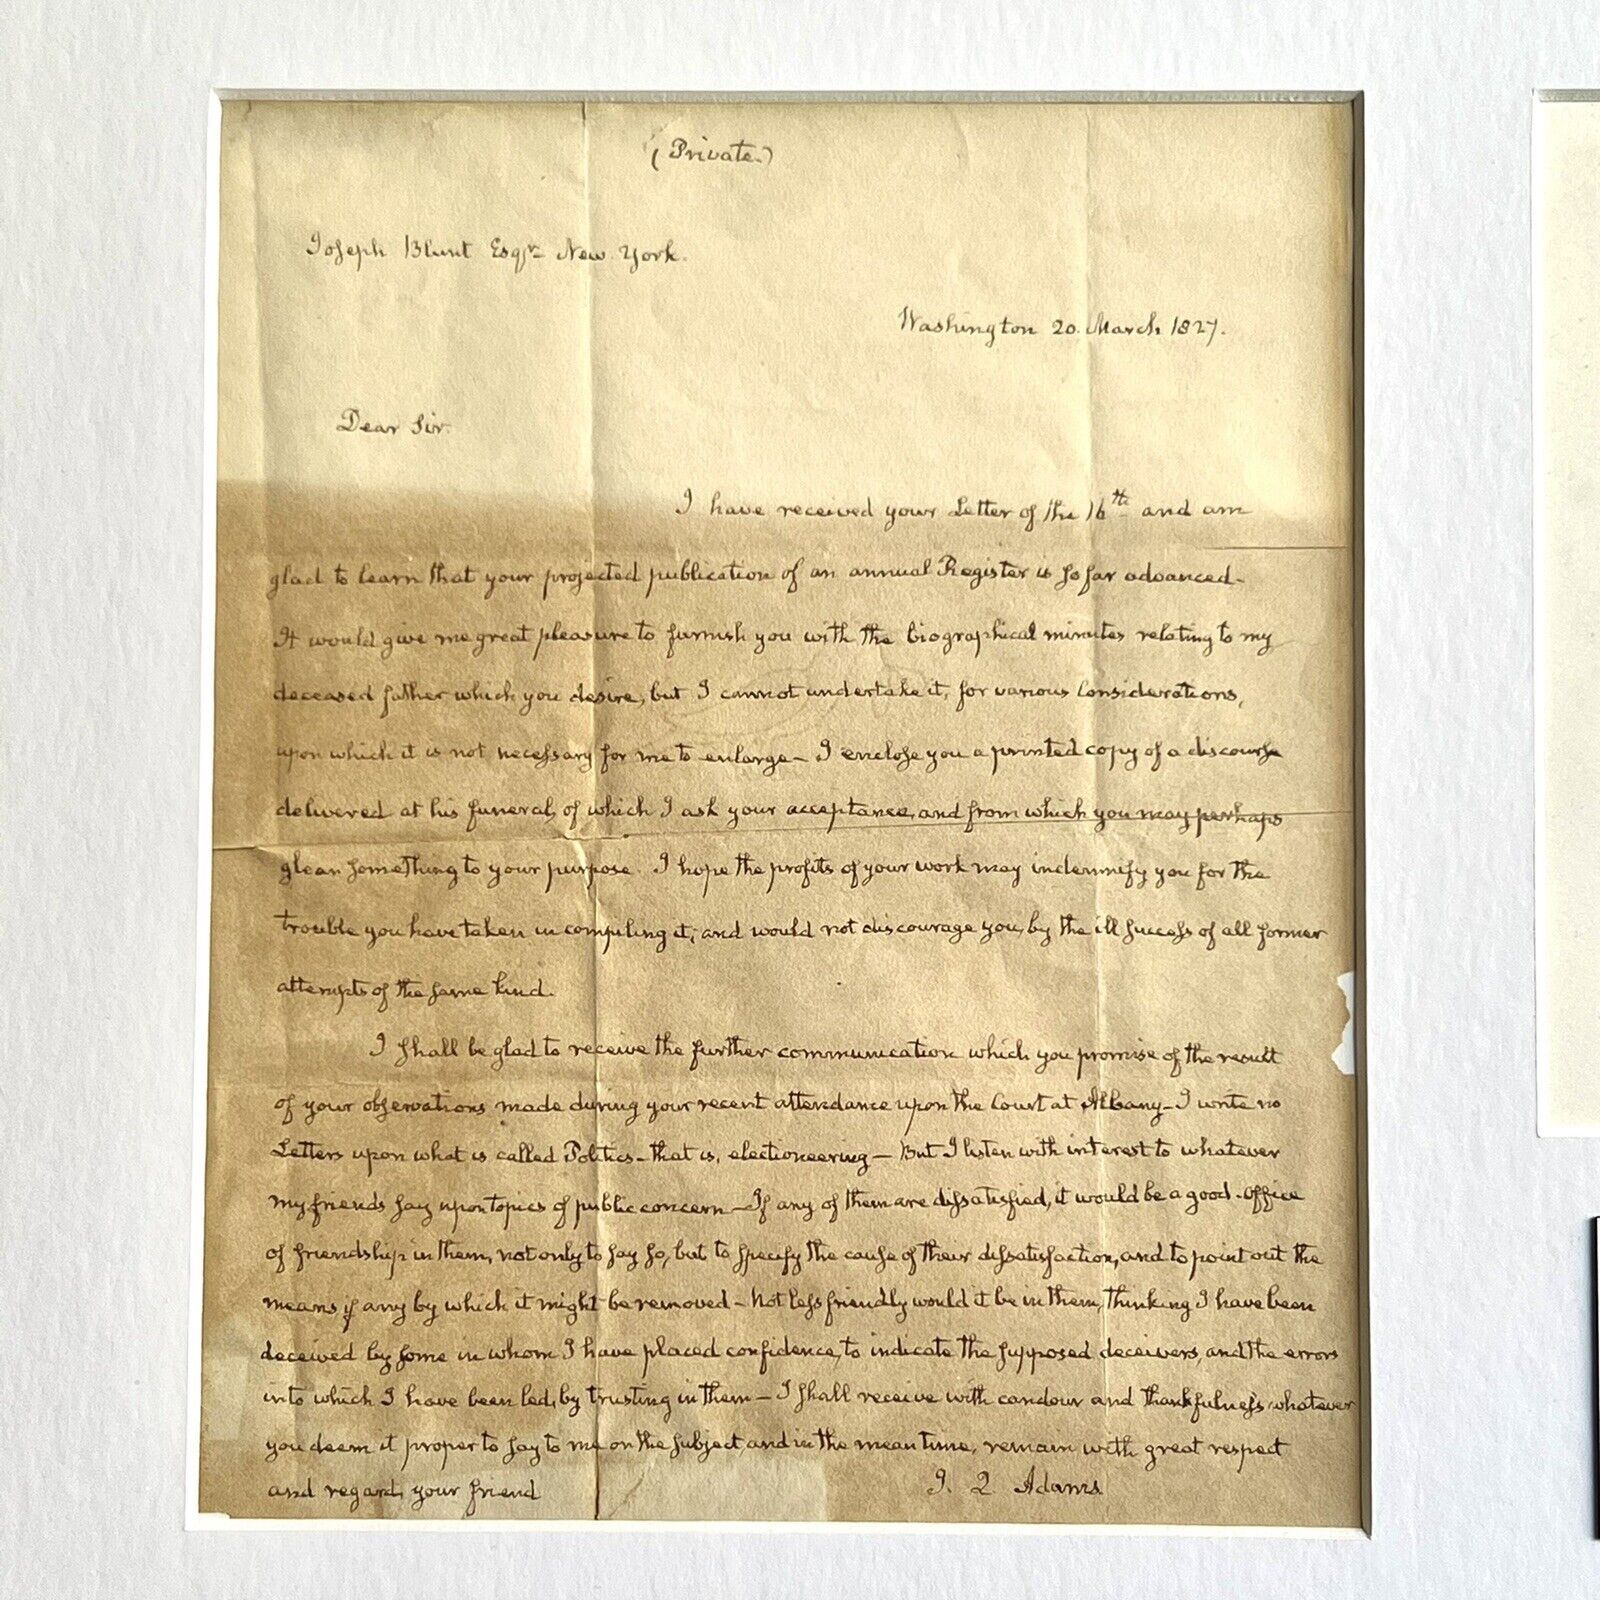 (Private.)
Joseph Blunt Esqr. New York.
Washington 20. March 1827.
Dear Sir.
I have received your Letter of the 16th and am
glad to learn that your projected publication of an annual Register is so far advanced-
It would give me great pleasure to furnish you with the biographical minutes relating to my
deceased father which you desire, but I cannot undertake it, for various considerations,
upon which it is not necessary for me to enlarge- I enclose you a printed copy of a discourse
delivered at his funeral, of which I ask your acceptance, and from which you may perhaps
glean something to your purpose. I hope the profits of your work may indemnify you for the
trouble you have taken in compiling it; and would not discourage you, by the ill success of all former
attempts of the same kind.
I shall be glad to receive the further communication which you promise of the result
of your observations made during your recent attendance upon the Court at Albany- I write no
Letters upon what is called Politics- that is, electioneering- But I listen with interest to whatever
my friends say upon topics of public concern- If any of them are dissatisfied, it would be a good-office
of friendship in them, not only to say so, but to specify the cause of their dissatisfaction, and to point out the
means if any by which it might be removed- Not less friendly would it be in them, thinking I have been
deceived by some in whom I have placed confidence, to indicate the supposed deceivers, and the errors
into which I have been led, by trusting in them- I shall receive with candour and thankfulness whatever
you deem it proper to say to me on the subject, and in the mean time, remain with great respect
and regard, your friend
J. Q. Adams.